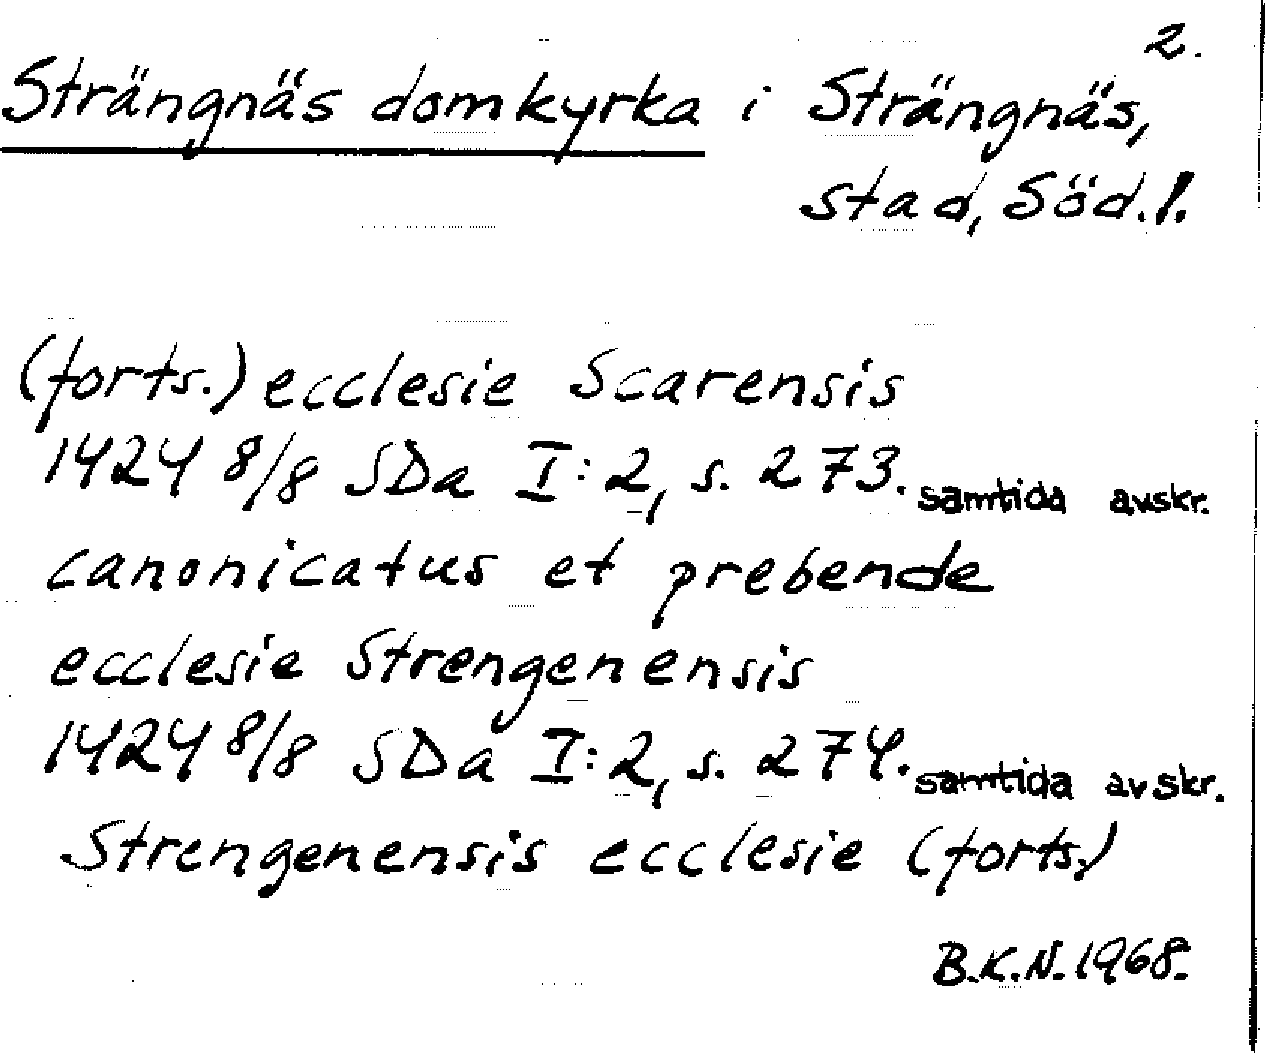 2.
Strängnäs domkyrka i Strängnäs,
stad, Söd.l.
(forts.) ecclesie Scarensis
1424 8/8 SDa I:2, s. 273. samtida avskr.
canonicatus et prebende
ecclesie Strengenensis
1424 8/8 SDa I:2, s. 274. samtida avskr.
Strengenensis ecclesie (forts.)
B.K.N. 1968.